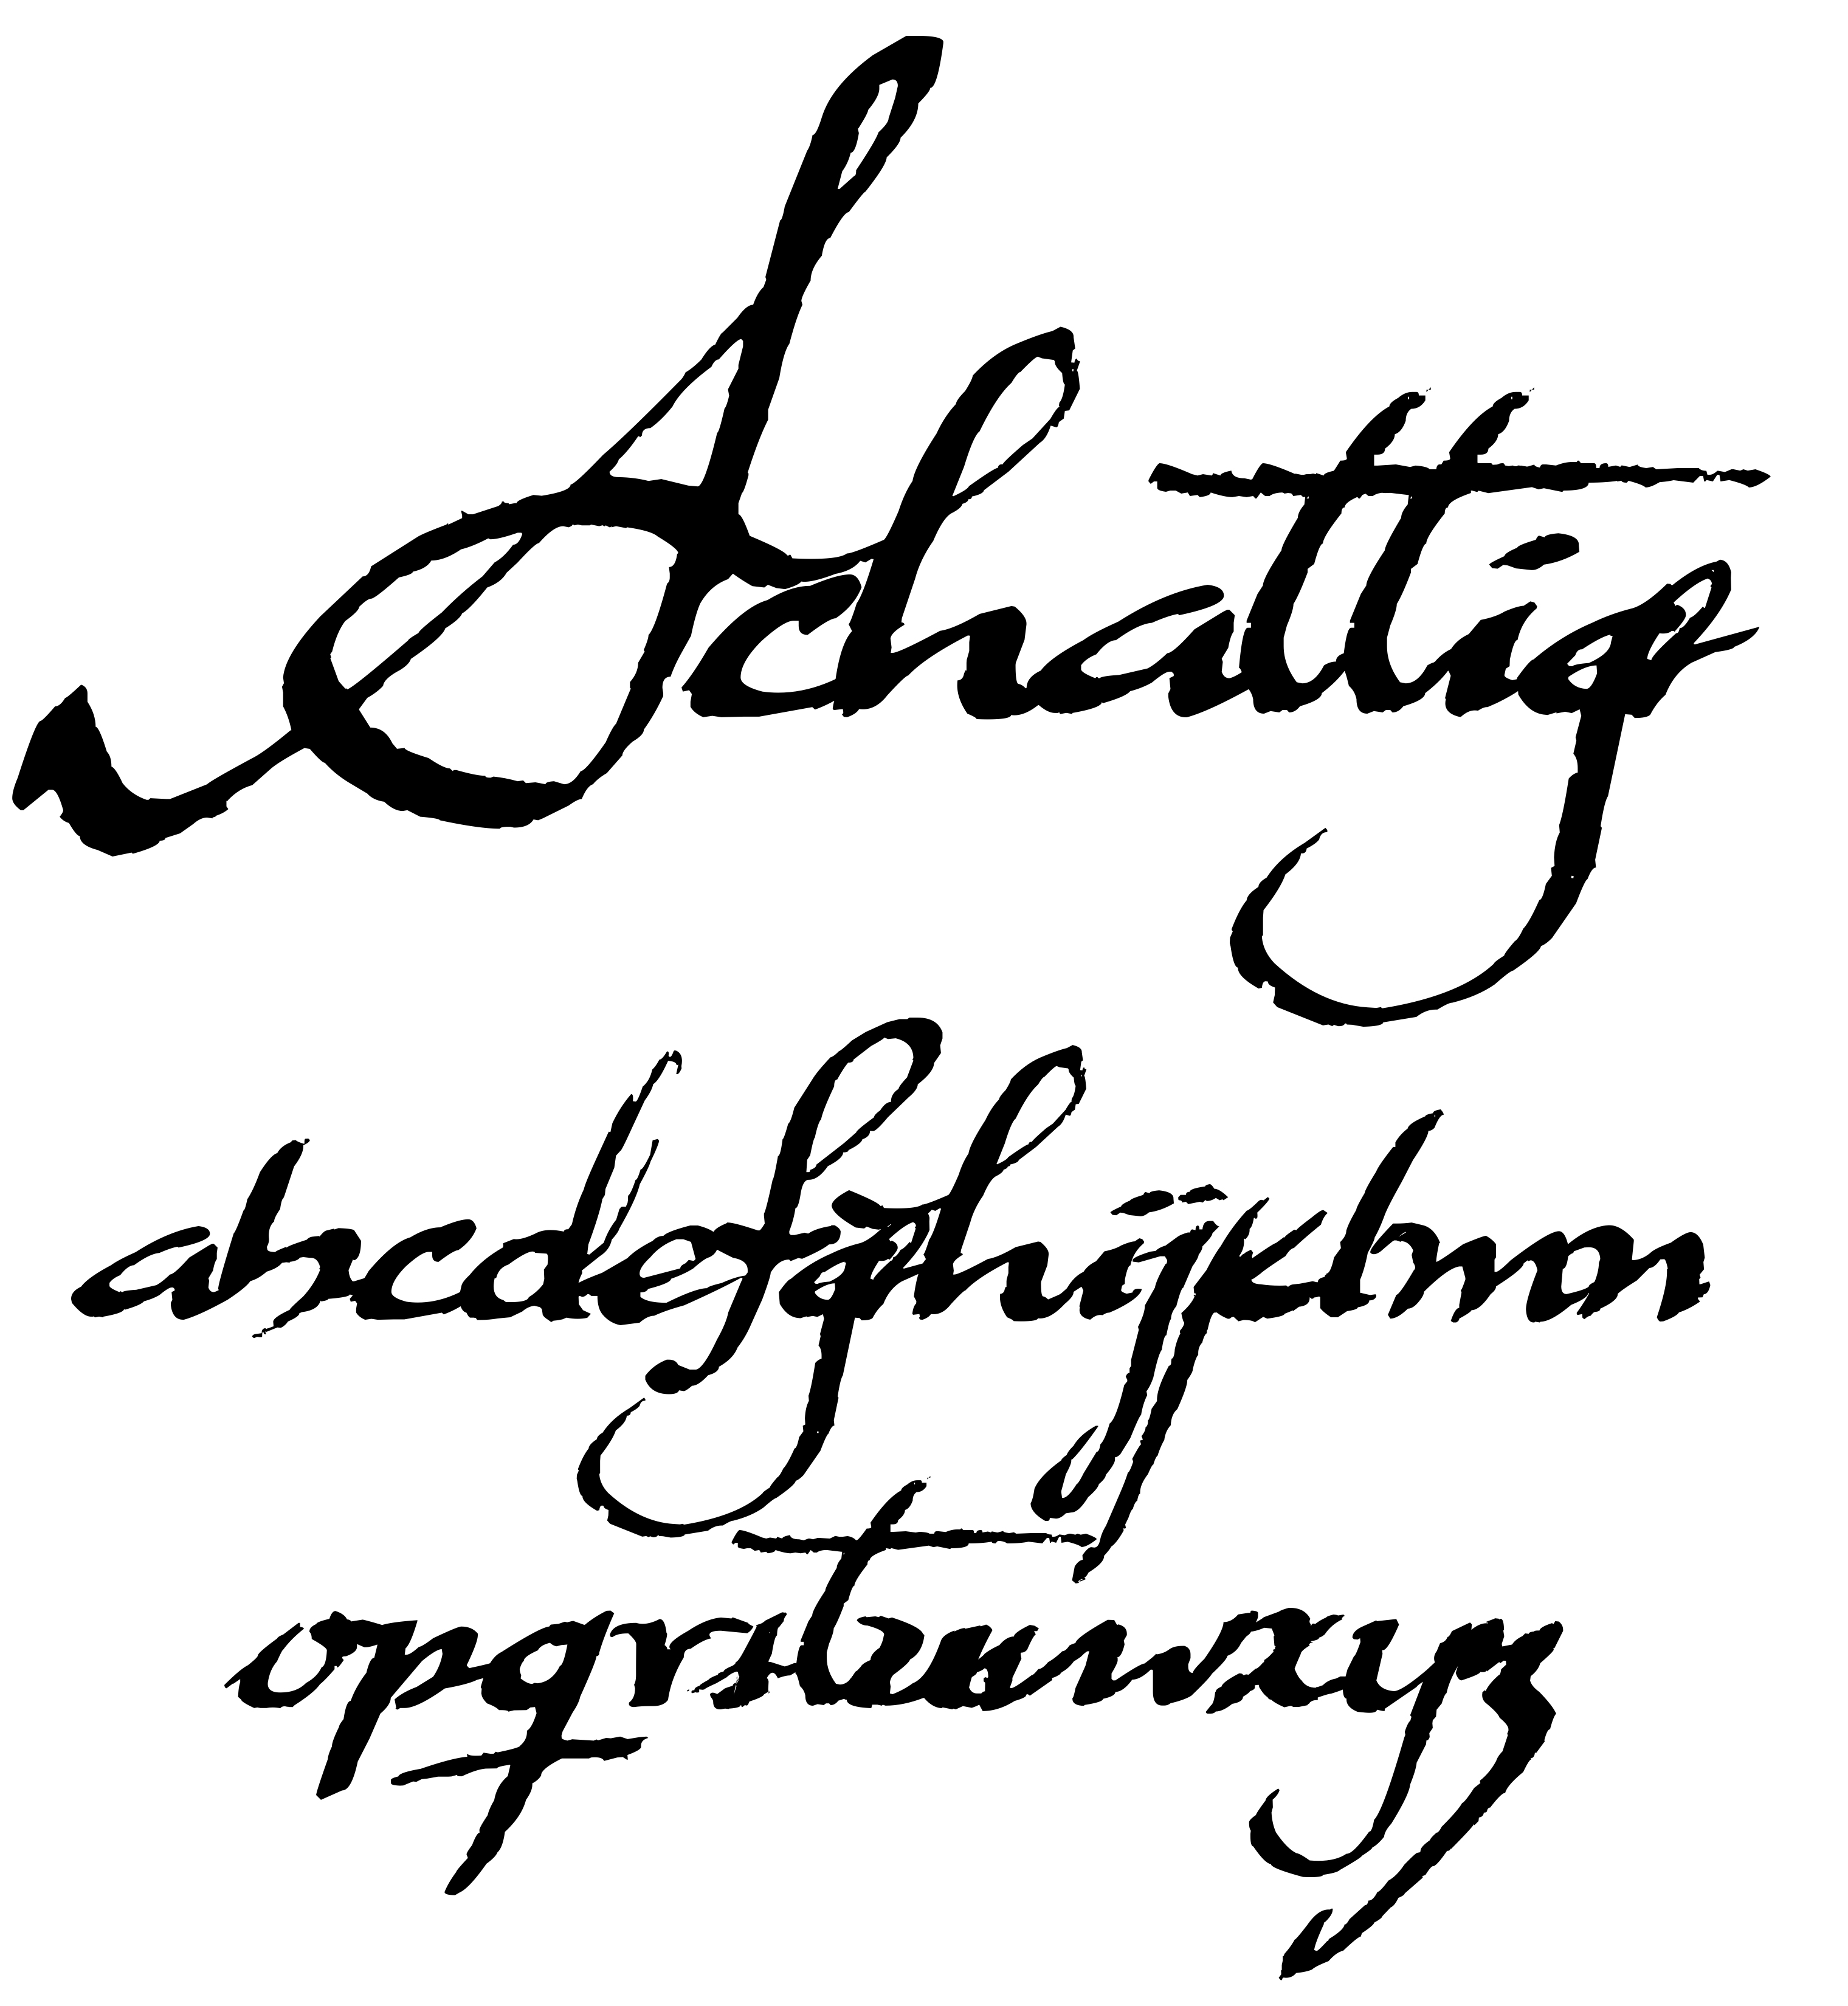 Schattig
abcdefghijklmn
opqrstuvwxyz